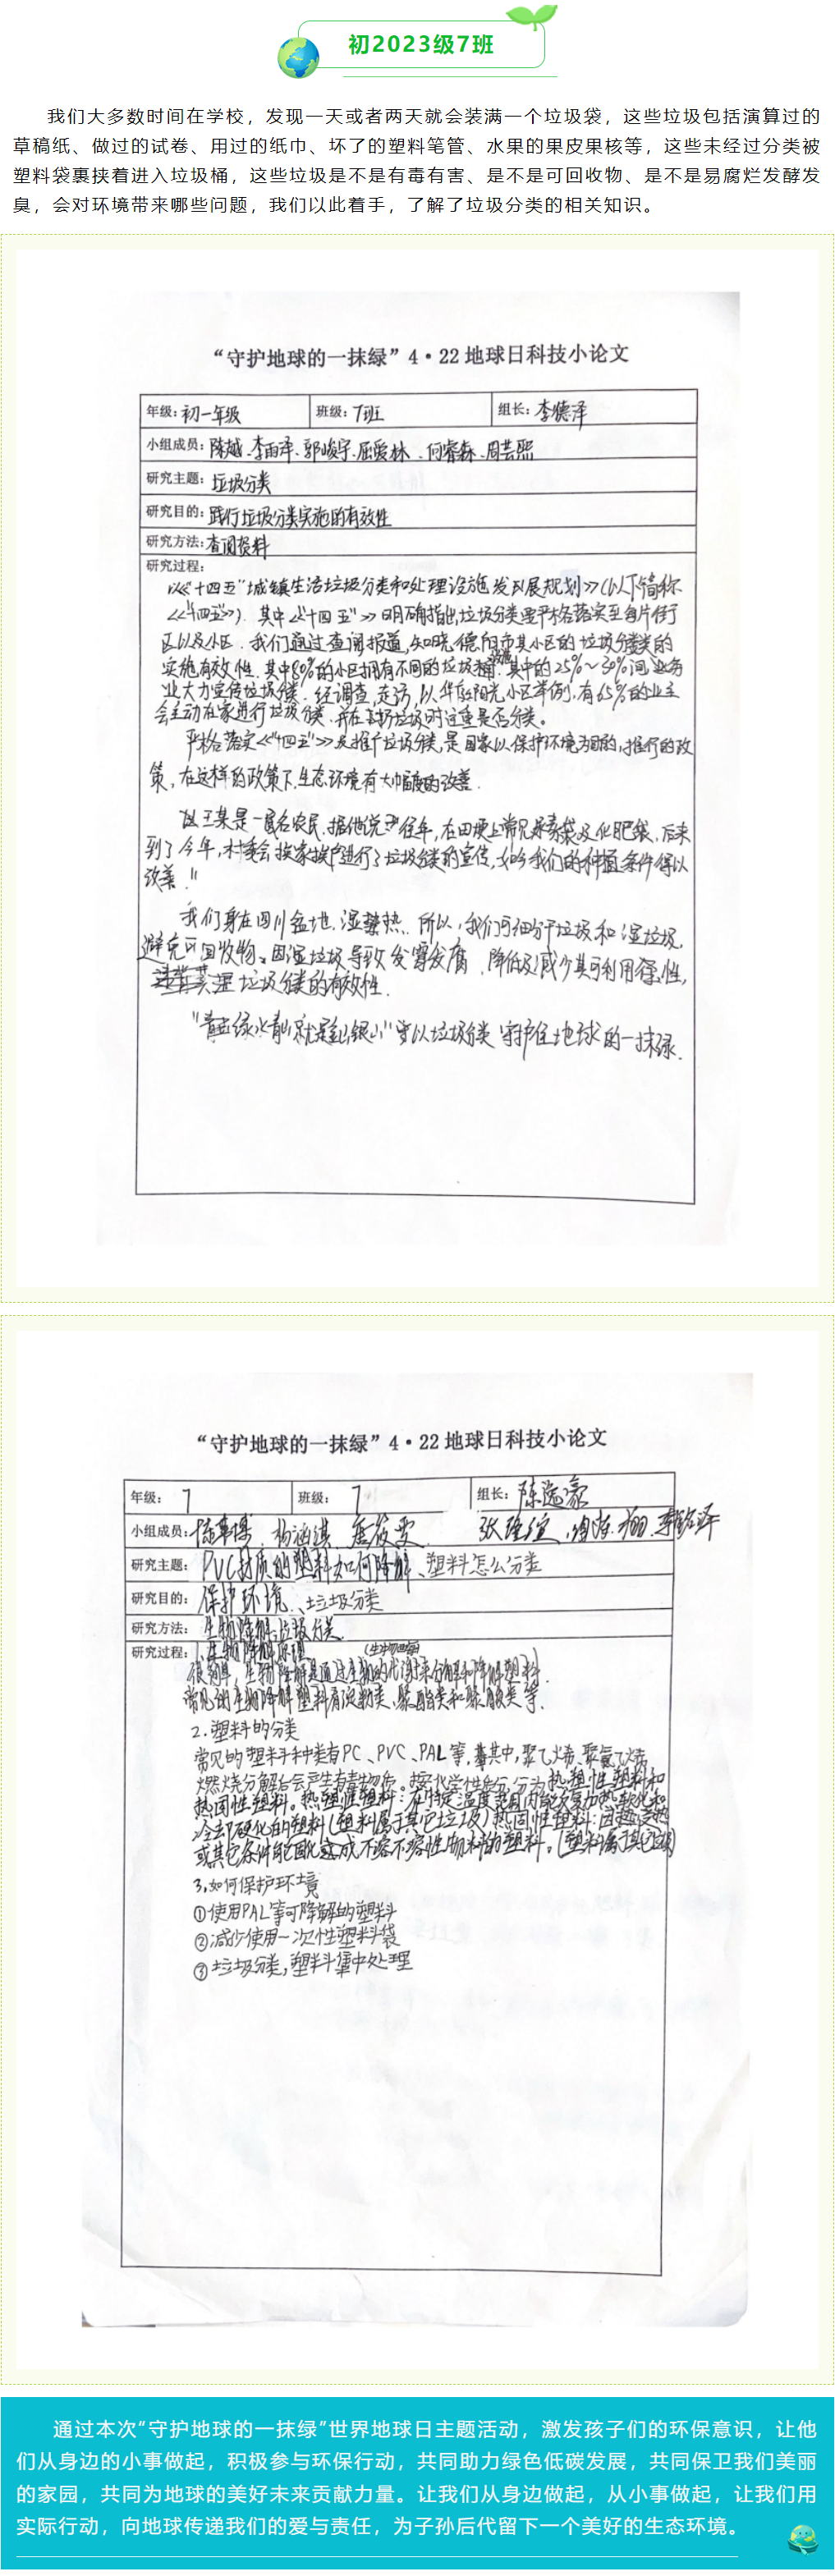 初2023级7班
我们大多数时间在学校，发现一天或者两天就会装满一个垃圾袋，这些垃圾包括演算过的
草稿纸、做过的试卷、用过的纸巾、坏了的塑料笔管、水果的果皮果核等，这些未经过分类被
塑料袋裹挟着进入垃圾桶，这些垃圾是不是有毒有害、是不是可回收物、是不是易腐烂发酵发
臭，会对环境带来哪些问题，我们以此着手，了解了垃圾分类的相关知识。
“守护地球的一抹绿”4·22地球日科技小论文
年级：初一年级 班级：7班 组长：李德泽
小组成员：陈越、李雨泽、郭峻宇、屈爱林、何睿森、周芸熙
研究主题：垃圾分类
研究目的：践行垃圾分类实施的有效性
研究方法：查阅资料
研究过程：
以《“十四五”城镇生活垃圾分类和处理设施发展规划》（以下简称
《十四五》）.其中《十四五》明确指出,垃圾分类要严格落实至每片街
区以及小区.我们通过查阅报道,知晓德阳市某小区的垃圾分类的
实施有效性.其中80%的小区拥有不同的垃圾桶.其中的25%~30%
业大力宣传垃圾分类.经调查,走访,以华红阳光小区举例,有65%的业主
会主动在家进行垃圾分类.并在扔垃圾时注重是否分类。
严格落实《十四五》及推广垃圾分类,是国家以保护环境为目的,推行的政
策,在这样的政策下,生态环境有大幅度的改善.
王某是一名农民.据他说:“往年,在田埂上常见尿素袋及化肥袋,后来
到了今年,村委会挨家挨户进行了垃圾分类的宣传,如今我们的种植条件得以
改善.”
我们身在四川盆地,湿热.所以,我们可细分干垃圾和湿垃圾,
避免可回收物因湿垃圾导致发霉发腐.降低及减少其可利用性,
垃圾分类的有效性.
绿水青山就是金山银山”以垃圾分类守护住地球的一抹绿.
“守护地球的一抹绿”4·22地球日科技小论文
年级：7 班级：7 组长：陈逸豪
小组成员：
研究主题：PVC材质的塑料如何降解、塑料怎么分类
研究目的：保护环境、垃圾分类
研究方法：生物降解,垃圾分类
研究过程：1.生物降解原理
生物降解是通过生物的代谢来分解和降解塑料.
常见的生物降解塑料有淀粉类、聚酯类和聚酸类等.
2.塑料的分类
常见的塑料种类有PC、PVC、PAL等,其中,聚乙烯、聚氯乙烯
燃烧分解后会产生有毒物质。按化学性质可分为热塑性塑料和
热固性塑料。热塑性塑料:在特定温度范围内能反复加热软化和
冷却硬化的塑料(塑料属于其它垃圾)热固性塑料:因受热
或其它条件能固化成不溶不熔性物料的塑料。(塑料属于其它垃圾)
3.如何保护环境
①使用PAL等可降解的塑料
②减少使用一次性塑料袋
③垃圾分类,塑料集中处理
通过本次“守护地球的一抹绿”世界地球日主题活动，激发孩子们的环保意识，让他
们从身边的小事做起，积极参与环保行动，共同助力绿色低碳发展，共同保卫我们美丽
的家园，共同为地球的美好未来贡献力量。让我们从身边做起，从小事做起，让我们用
实际行动，向地球传递我们的爱与责任，为子孙后代留下一个美好的生态环境。